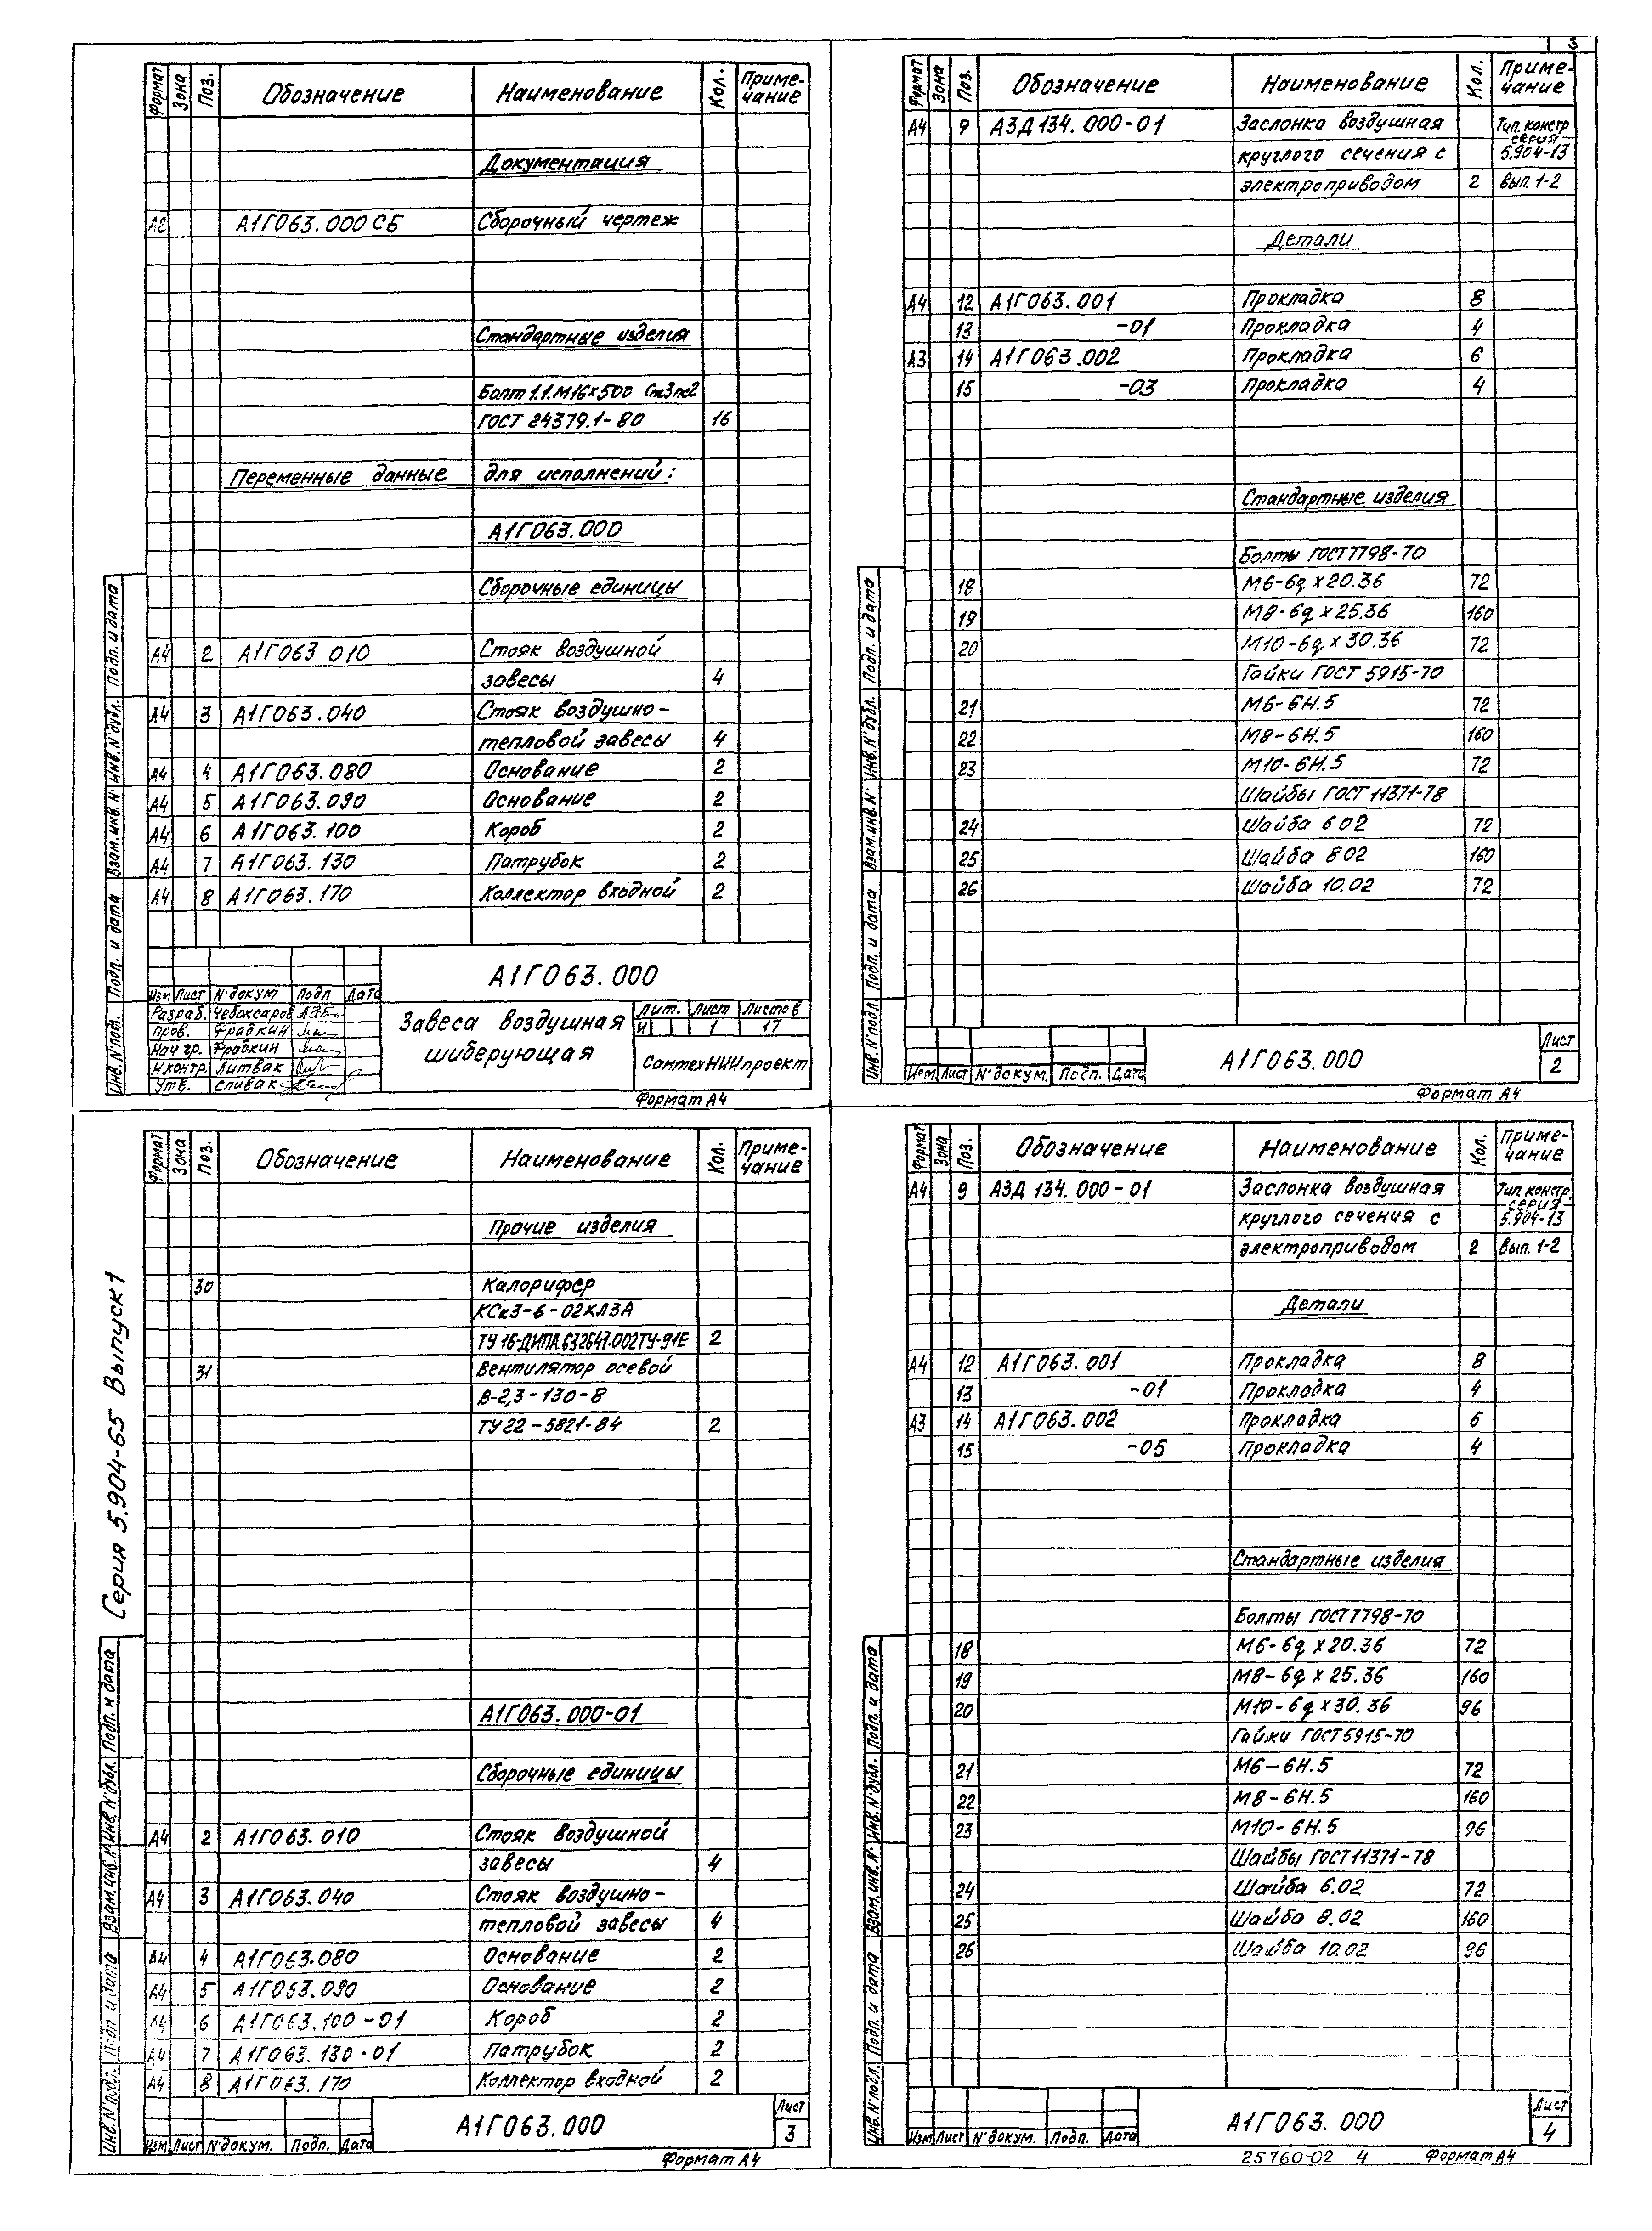 3
Формат Зона Поз. Обозначение Наименование Кол. Приме-
чание
Документация
А2 А1Г063.000 СБ Сборочный чертеж
Стандартные изделия
Болт 1.1.М16х500 Ст3пс2
ГОСТ 24379.1-80 16
Переменные данные для исполнений:
А1Г063.000
Сборочные единицы
А4 2 А1Г063 010 Стояк воздушной
завесы 4
А4 3 А1Г063.040 Стояк воздушно-
тепловой завесы 4
А4 4 А1Г063.080 Основание 2
А4 5 А1Г063.090 Основание 2
А4 6 А1Г063.100 Короб 2
А4 7 А1Г063.130 Патрубок 2
А4 8 А1Г063.170 Коллектор входной 2
Инв.N°подл. Подп. и дата Взам.инв.N° Инв.N°дубл. Подп. и дата
А1Г063.000
Изм Лист N°докум Подп Дата
Разраб. Чебоксаров
Пров. Фрадкин
Нач гр. Фрадкин
Н.контр. Литвак
Утв. Спивак
Завеса воздушная
шиберующая
Лит. Лист Листов
И 1 17
СантехНИИпроект
Формат А4
Формат Зона Поз. Обозначение Наименование Кол. Приме-
чание
А4 9 А3Д134.000-01 Заслонка воздушная Тип. констр
серия
круглого сечения с 5.904-13
электроприводом 2 вып. 1-2
Детали
А4 12 А1Г063.001 Прокладка 8
13 -01 Прокладка 4
А3 14 А1Г063.002 Прокладка 6
15 -03 Прокладка 4
Стандартные изделия
Болты ГОСТ 7798-70
18 М6-6g х 20.36 72
19 М8-6g х 25.36 160
20 М10-6g х 30.36 72
Гайки ГОСТ 5915-70
21 М6-6Н.5 72
22 М8-6Н.5 160
23 М10-6Н.5 72
Шайбы ГОСТ 11371-78
24 Шайба 6 02 72
25 Шайба 8 02 160
26 Шайба 10.02 72
Инв.N°подл. Подп. и дата Взам.инв.N° Инв.N°дубл. Подп. и дата
Изм Лист N°докум. Подп. Дата
А1Г063.000
Лист
2
Формат А4
Серия 5.904-65 Выпуск 1
Формат Зона Поз. Обозначение Наименование Кол. Приме-
чание
Прочие изделия
30 Калорифер
КСк3-6-02ХЛ3А
ТУ 16-ДИПА.632647.002ТУ-91Е 2
31 Вентилятор осевой
В-2,3-130-8
ТУ22-5821-84 2
А1Г063.000-01
Сборочные единицы
А4 2 А1Г063.010 Стояк воздушной
завесы 4
А4 3 А1Г063.040 Стояк воздушно-
тепловой завесы 4
А4 4 А1Г063.080 Основание 2
А4 5 А1Г063.090 Основание 2
А4 6 А1Г063.100-01 Короб 2
А4 7 А1Г063.130-01 Патрубок 2
А4 8 А1Г063.170 Коллектор входной 2
Инв.N°подл. Подп. и дата Взам.инв.N° Инв.N°дубл. Подп. и дата
Изм Лист N°докум. Подп. Дата
А1Г063.000
Лист
3
Формат А4
Формат Зона Поз. Обозначение Наименование Кол. Приме-
чание
А4 9 А3Д 134.000-01 Заслонка воздушная Тип констр.
серия
круглого сечения с 5.904-13
электроприводом 2 вып. 1-2
Детали
А4 12 А1Г063.001 Прокладка 8
13 -01 Прокладка 4
А3 14 А1Г063.002 Прокладка 6
15 -05 Прокладка 4
Стандартные изделия
Болты ГОСТ 7798-70
18 М6-6g х 20.36 72
19 М8-6g х 25.36 160
20 М10-6g х 30.36 96
Гайки ГОСТ 5915-70
21 М6-6Н.5 72
22 М8-6Н.5 160
23 М10-6Н.5 96
Шайбы ГОСТ 11371-78
24 Шайба 6.02 72
25 Шайба 8.02 160
26 Шайба 10.02 96
Инв.N°подл. Подп. и дата Взам.инв.N° Инв.N°дубл. Подп. и дата
Изм Лист N°докум. Подп. Дата
А1Г063.000
Лист
4
25760-02 4 Формат А4